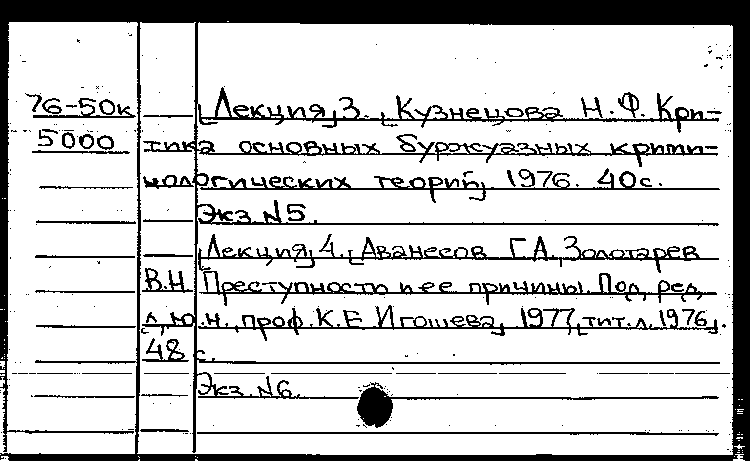 76-50к [Лекция] 3. [Кузнецова Н.Ф. Кри-
5000 тика основных буржуазных крими-
нологических теорий]. 1976. 40с.
Экз. №5.
[Лекция] 4. [Аванесов Г.А., Золотарев
В.Н. Преступность и ее причины. Под. ред.
д.ю.н., проф. К.Е. Игошева]. 1977, [тит.л. 1976].
48 с.
Экз. №6.